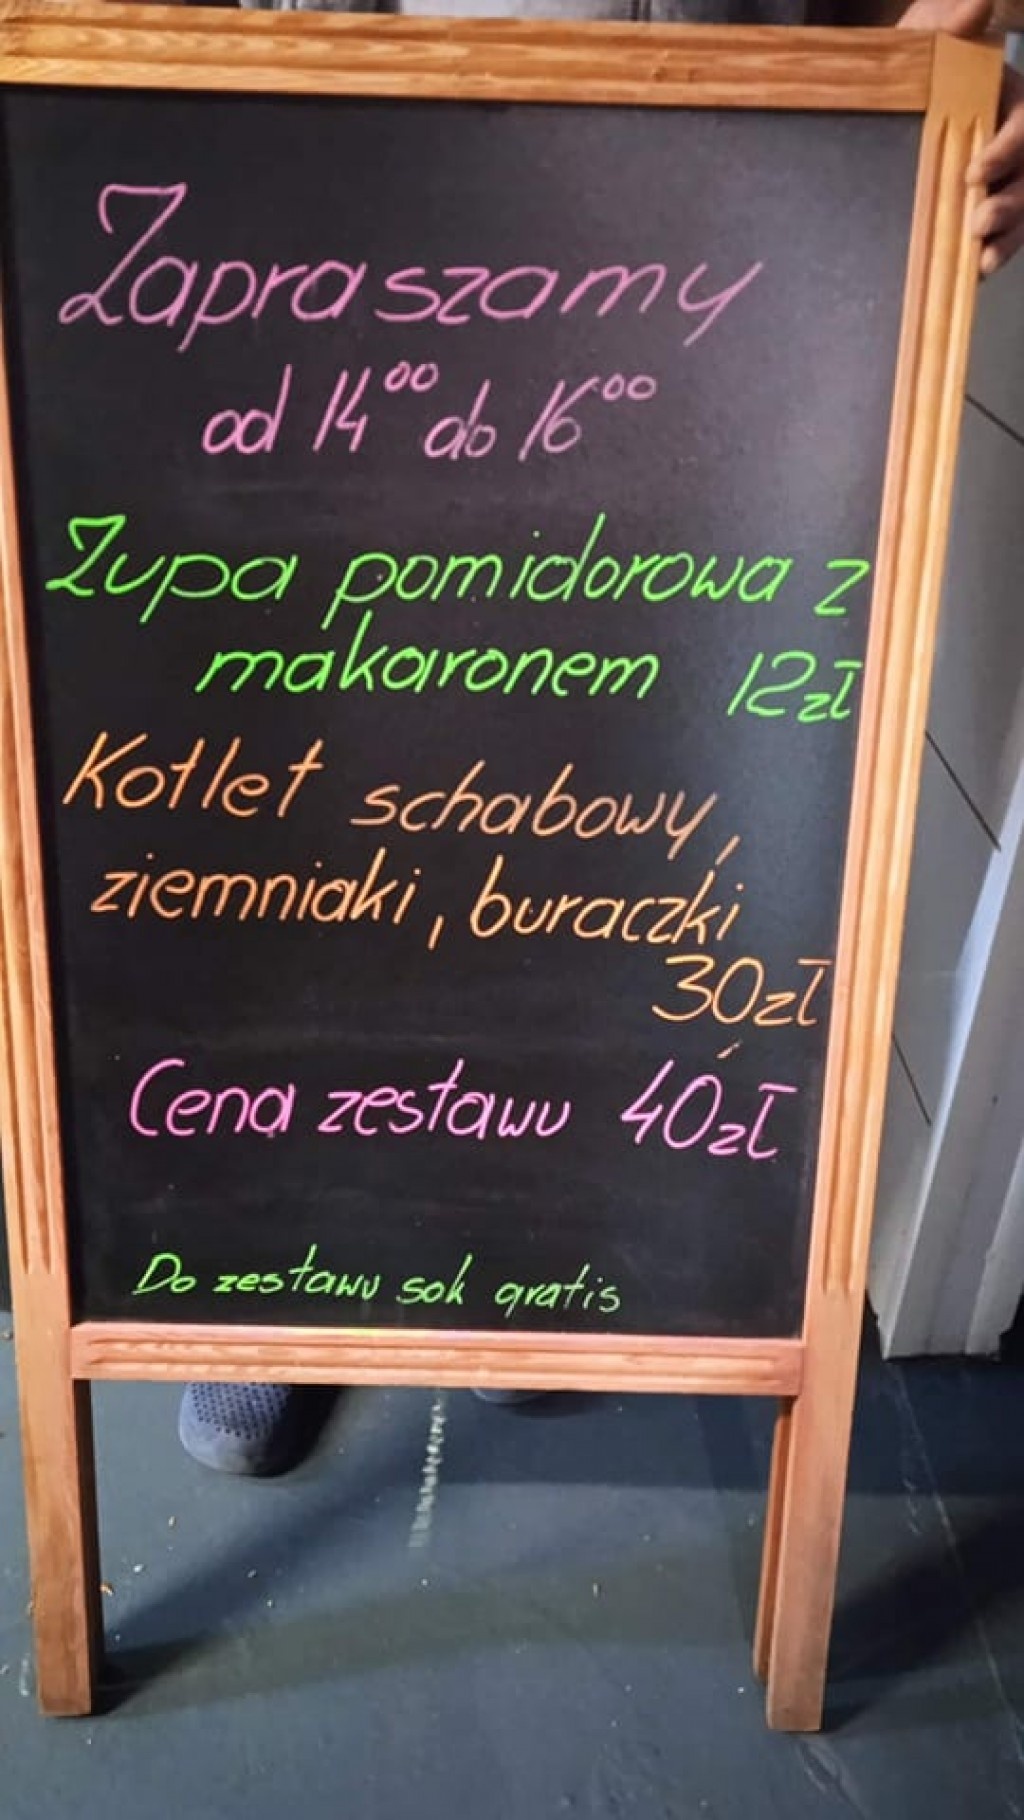 Zapraszamy
od 14⁰⁰ do 16⁰⁰
Zupa pomidorowa z
makaronem 12zł
Kotlet schabowy,
ziemniaki, buraczki
30zł
Cena zestawu 40zł
Do zestawu sok gratis